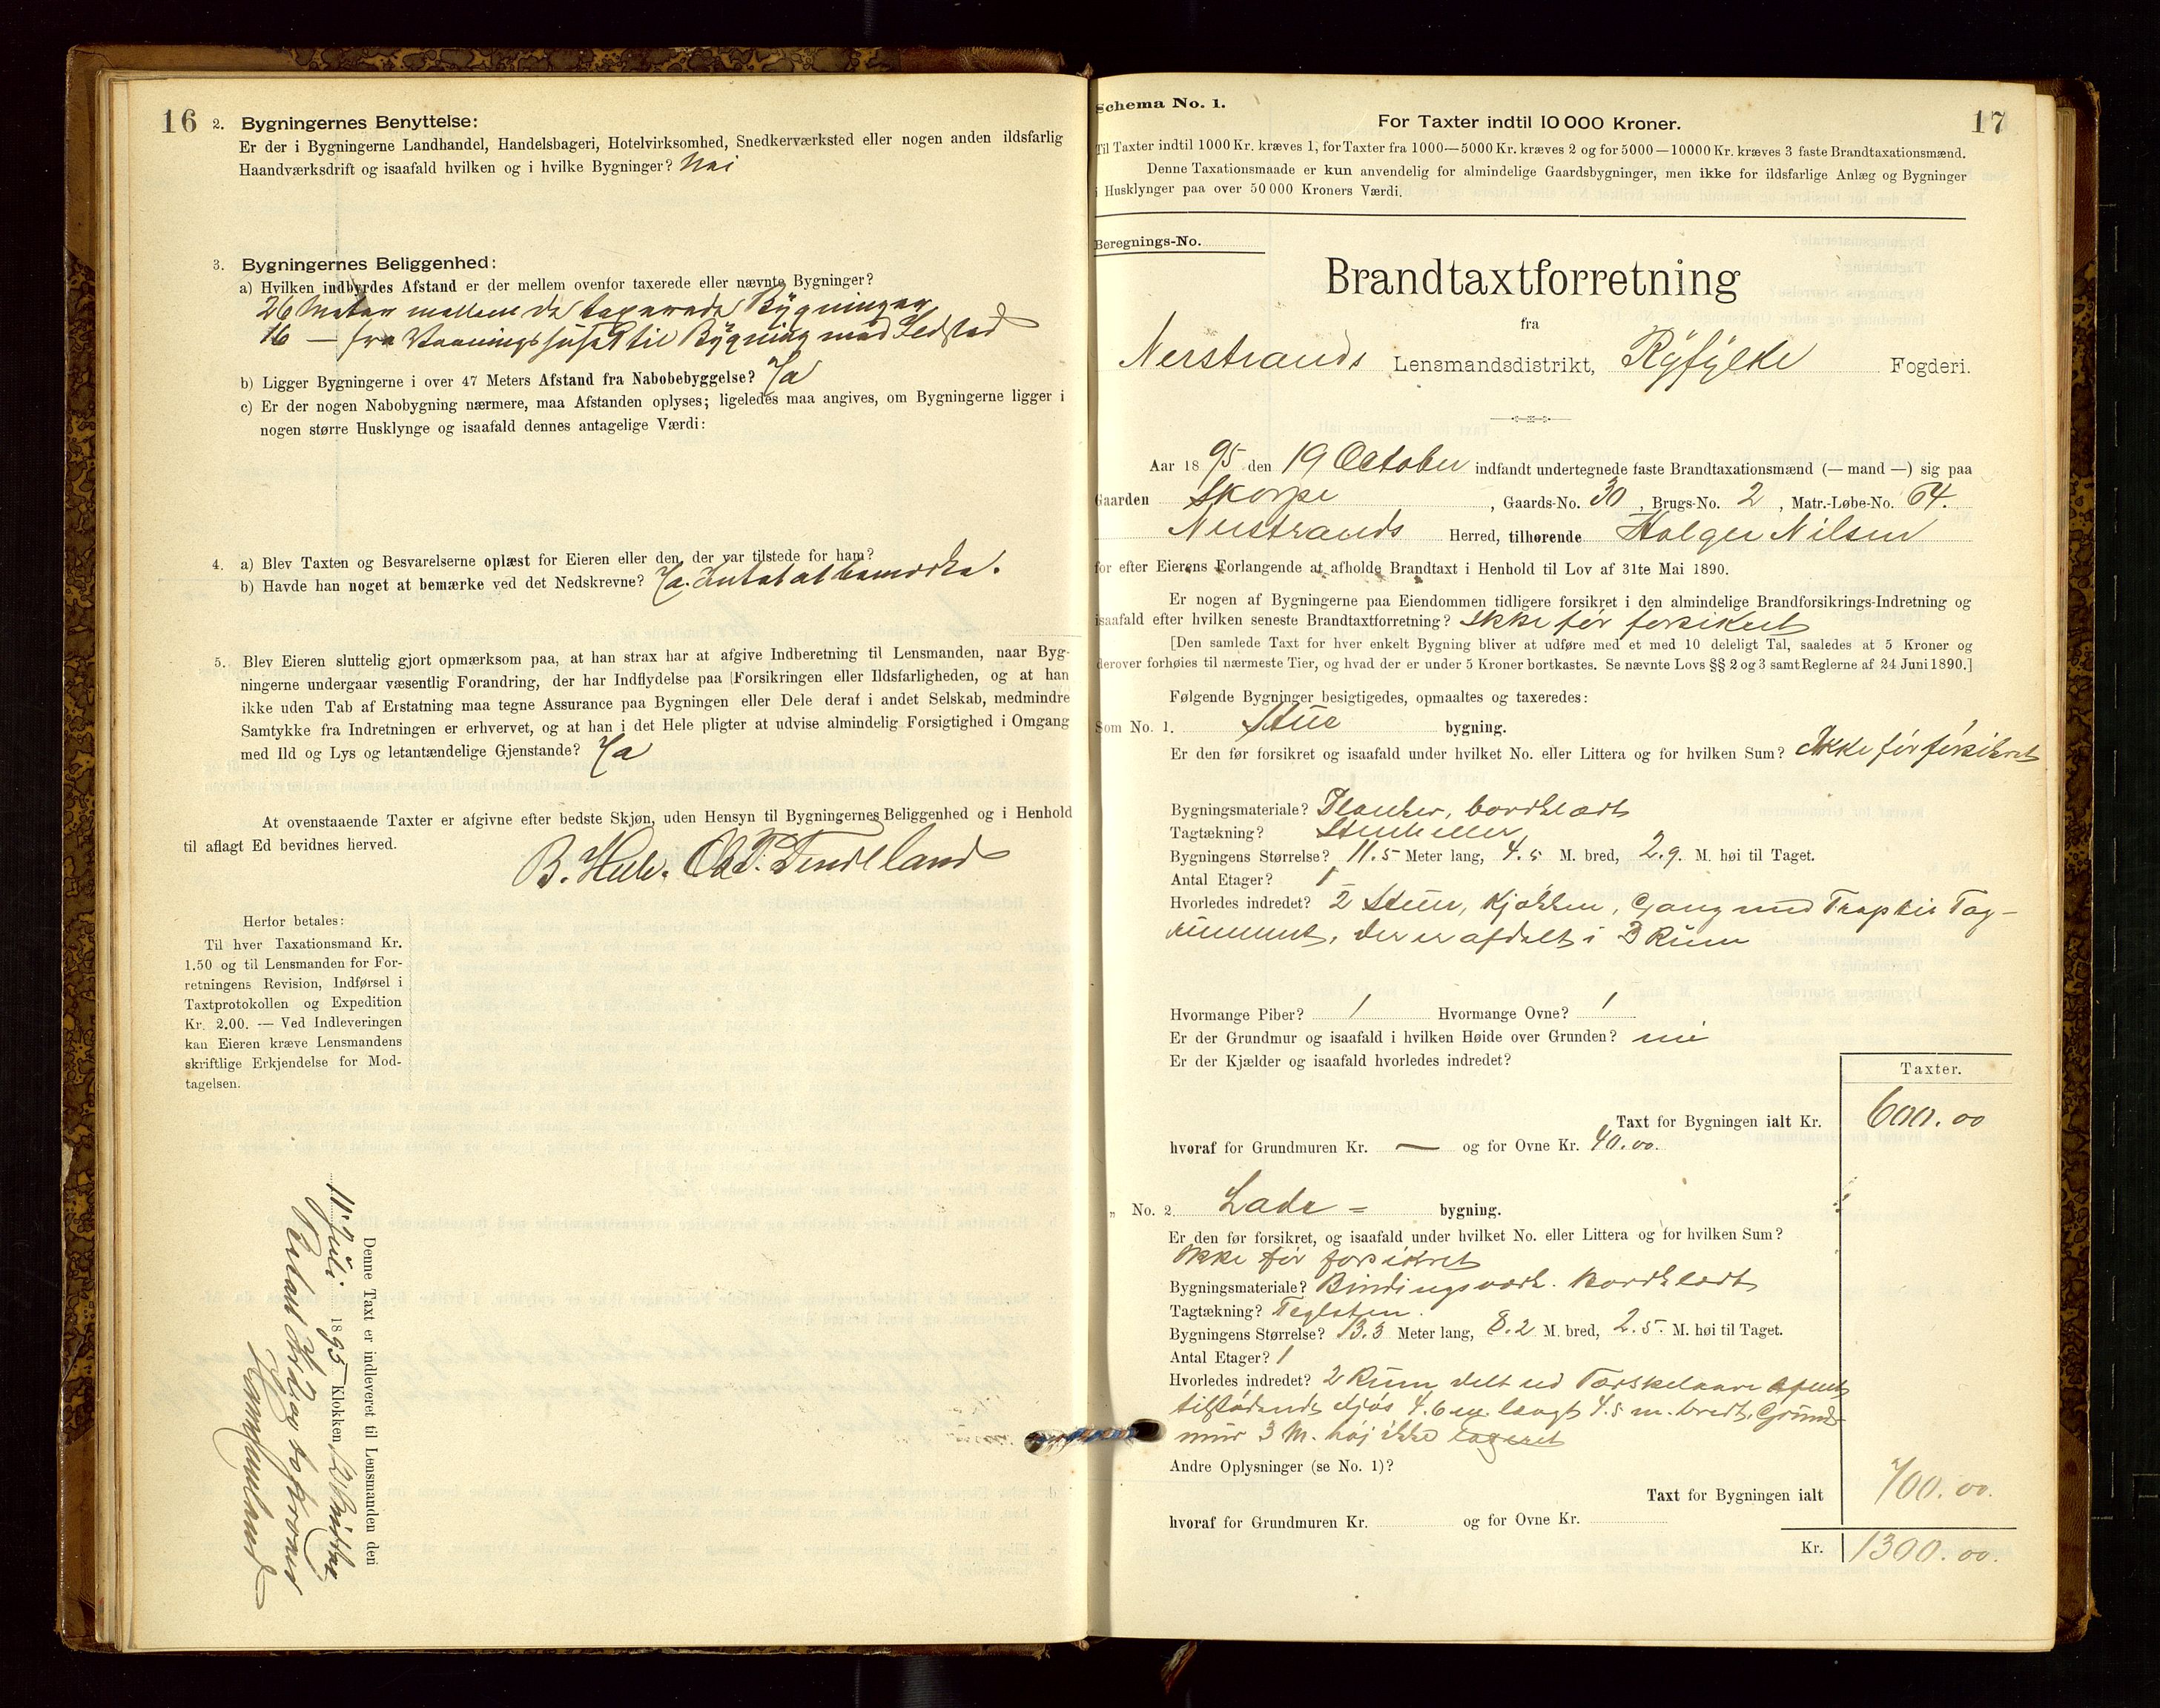 16
2. Bygningernes Benyttelse:
Er der i Bygningerne Landhandel, Handelsbageri, Hotelvirksomhed, Snedkerværksted eller nogen anden ildsfarlig
Haandværksdrift og isaafald hvilken og i hvilke Bygninger? Nei
3. Bygningernes Beliggenhed:
a) Hvilken indbyrdes Afstand er der mellem ovenfor taxerede eller nævnte Bygninger?
26 Meter mellem de taxerede Bygninger
16 — fra Vaaningshuset til Bygning med Ildsted
b) Ligger Bygningerne i over 47 Meters Afstand fra Nabobebyggelse? Ja
c) Er der nogen Nabobygning nærmere, maa Afstanden oplyses; ligeledes maa angives, om Bygningerne ligger i
nogen større Husklynge og isaafald dennes antagelige Værdi:
4. a) Blev Taxten og Besvarelserne oplæst for Eieren eller den, der var tilstede for ham?
b) Havde han noget at bemærke ved det Nedskrevne? Ja. Intet at bemærke.
5. Blev Eieren sluttelig gjort opmærksom paa, at han strax har at afgive Indberetning til Lensmanden, naar Byg-
ningerne undergaar væsentlig Forandring, der har Indflydelse paa Forsikringen eller Ildsfarligheden, og at han
ikke uden Tab af Erstatning maa tegne Assurance paa Bygningen eller Dele deraf i andet Selskab, medmindre
Samtykke fra Indretningen er erhvervet, og at han i det Hele pligter at udvise almindelig Forsigtighed i Omgang
med Ild og Lys og letantændelige Gjenstande? Ja
At ovenstaaende Taxter er afgivne efter bedste Skjøn, uden Hensyn til Bygningernes Beliggenhed og i Henhold
til aflagt Ed bevidnes herved.
B. Hele. T. Tendeland
Herfor betales:
Til hver Taxationsmand Kr.
1.50 og til Lensmanden for For-
retningens Revision, Indførsel i
Taxtprotokollen og Expedition
Kr. 2.00. — Ved Indleveringen
kan Eieren kræve Lensmandens
skriftlige Erkjendelse for Mod-
tagelsen.
Denne Taxt er indleveret til Lensmanden den
11. Juli 1895 Klokken
Schema No. 1.
17
For Taxter indtil 10 000 Kroner.
Til Taxter indtil 1000 Kr. kræves 1, for Taxter fra 1000—5000 Kr. kræves 2 og for 5000—10000 Kr. kræves 3 faste Brandtaxationsmænd.
Denne Taxationsmaade er kun anvendelig for almindelige Gaardsbygninger, men ikke for ildsfarlige Anlæg og Bygninger
i Husklynger paa over 50 000 Kroners Værdi.
Beregnings-No.
Brandtaxtforretning
fra
Nerstrands Lensmandsdistrikt, Ryfylke Fogderi.
Aar 1895 den 19 October indfandt undertegnede faste Brandtaxationsmænd (— mand —) sig paa
Gaarden Skorpe, Gaards-No. 30, Brugs-No. 2, Matr.-Løbe-No. 64.
Nerstrands Herred, tilhørende Holger Nilsen
for efter Eierens Forlangende at afholde Brandtaxt i Henhold til Lov af 31te Mai 1890.
Er nogen af Bygningerne paa Eiendommen tidligere forsikret i den almindelige Brandforsikrings-Indretning og
isaafald efter hvilken seneste Brandtaxtforretning? Ikke før forsikret
[Den samlede Taxt for hver enkelt Bygning bliver at udføre med et med 10 deleligt Tal, saaledes at 5 Kroner og
derover forhøies til nærmeste Tier, og hvad der er under 5 Kroner bortkastes. Se nævnte Lovs §§ 2 og 3 samt Reglerne af 24 Juni 1890.]
Følgende Bygninger besigtigedes, opmaaltes og taxeredes:
Som No. 1. Stue bygning.
Er den før forsikret og isaafald under hvilket No. eller Littera og for hvilken Sum? Ikke før forsikret
Bygningsmateriale? Planker, bordklædt
Tagtækning? Stenheller
Bygningens Størrelse? 11.5 Meter lang, 4.5 M. bred, 2.9. M. høi til Taget.
Antal Etager? 1
Hvorledes indredet? 2 Stuer, Kjøkken, Gang med Trap til Tag-
rummet, der er afdelt i 3 Rum
Hvormange Piber? 1 Hvormange Ovne? 1
Er der Grundmur og isaafald i hvilken Høide over Grunden? nei
Er der Kjælder og isaafald hvorledes indredet?
Taxter.
Taxt for Bygningen ialt Kr. 600.00
hvoraf for Grundmuren Kr. — og for Ovne Kr. 40.00.
„ No. 2. Lade = bygning.
Er den før forsikret, og isaafald under hvilket No. eller Littera og for hvilken Sum?
Ikke før forsikret
Bygningsmateriale? Bindingsværk. Bordklædt
Tagtækning? Teglsten.
Bygningens Størrelse? 13.3 Meter lang, 8.2 M. bred, 2.5. M. høi til Taget.
Antal Etager? 1
Hvorledes indredet? 2 Rum delt ved Tærskelaave
tilstødende Fjøs 4.6 m. langt 4.5 m. bredt, Grund-
mur 3 M. høj ikke taxeret
Andre Oplysninger (se No. 1)?
Taxt for Bygningen ialt 700.00.
hvoraf for Grundmuren Kr. og for Ovne Kr.
Kr. 1300.00.